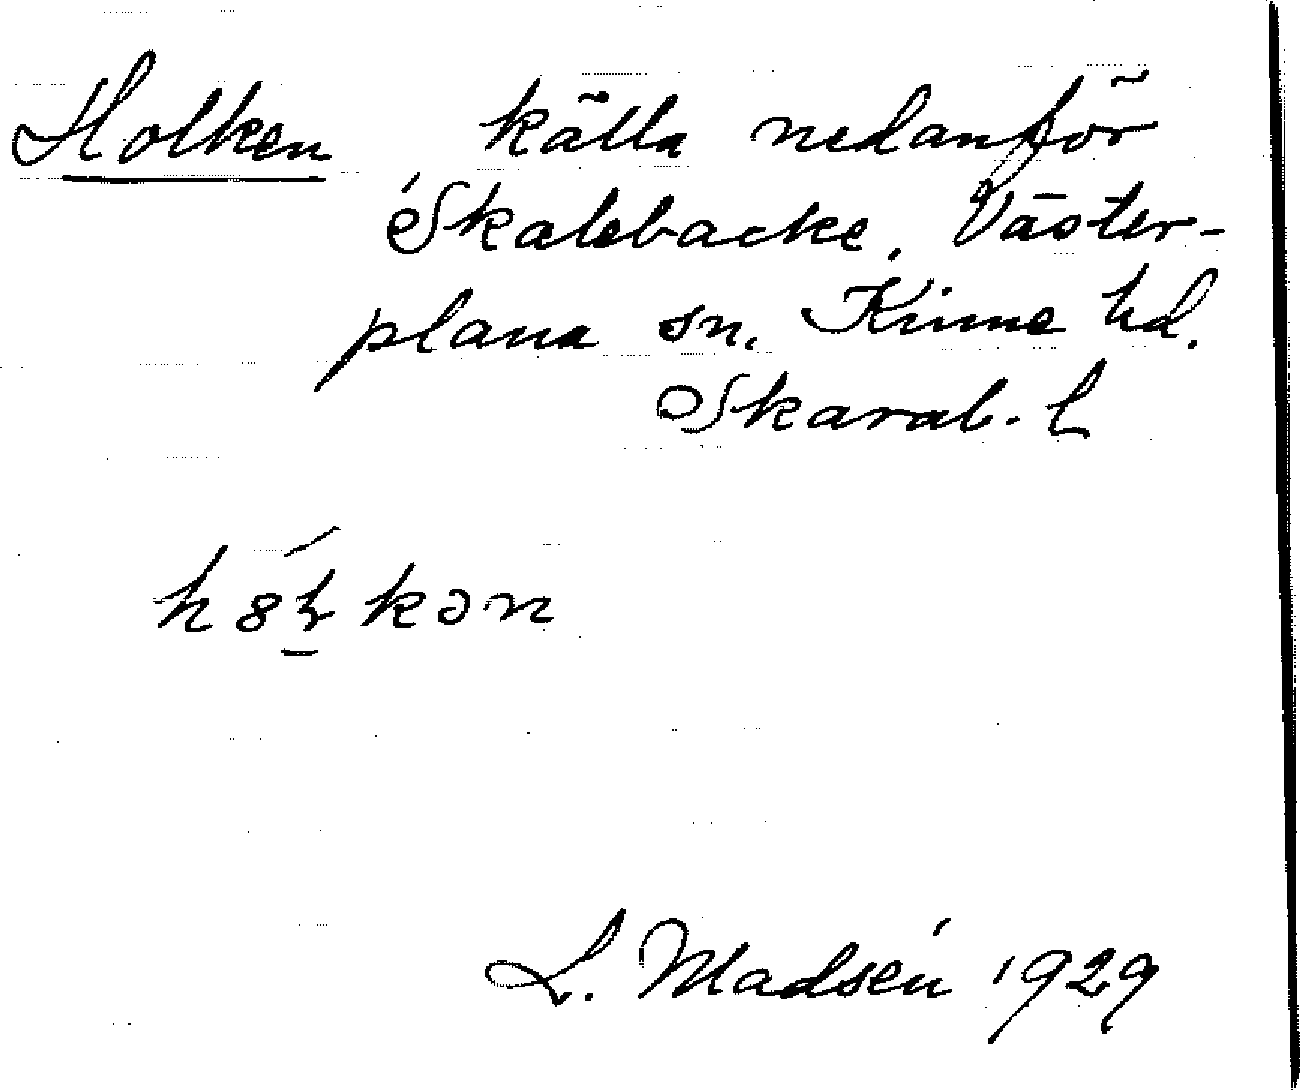 Holken källa nedanför
Skalebacke, Väster-
plana sn. Kinne hd.
Skarab. l
L. Madsén 1929